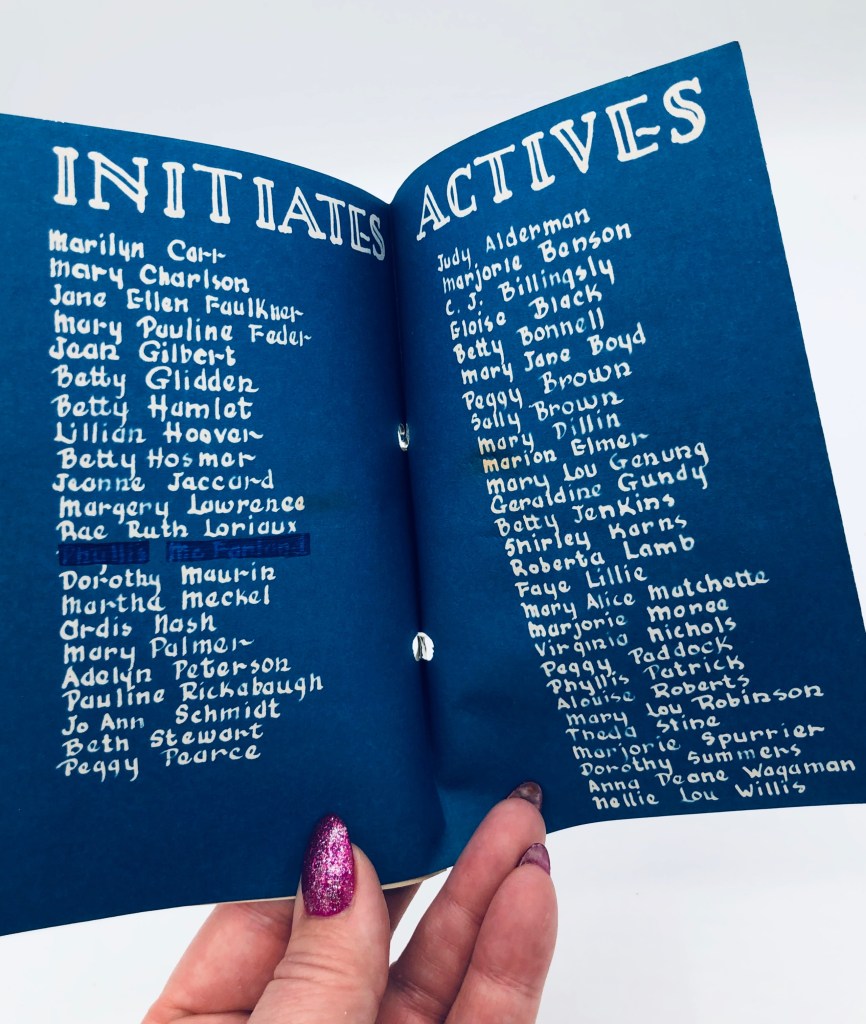 INITIATES
Marilyn Carr
Mary Charlson
Jane Ellen Faulkner
Mary Pauline Feder
Jean Gilbert
Betty Glidden
Betty Hamlet
Lillian Hoover
Betty Hosmer
Jeanne Jaccard
Margery Lawrence
Rae Ruth Loriaux
Phyllis
Dorothy Maurin
Martha Meckel
Ardis Nash
Mary Palmer
Adelyn Peterson
Pauline Rickabaugh
Jo Ann Schmidt
Beth Stewart
Peggy Pearce
ACTIVES
Judy Alderman
Marjorie Benson
C. J. Billingsly
Eloise Black
Betty Bonnell
Mary Jane Boyd
Peggy Brown
Sally Brown
Mary Dillin
Marion Elmer
Mary Lou Genung
Geraldine Gundy
Betty Jenkins
Shirley Karns
Roberta Lamb
Faye Lillie
Mary Alice Matchette
Marjorie Moree
Virginia Nichols
Peggy Paddock
Phyllis Patrick
Alouise Roberts
Mary Lou Robinson
Theda Stine
Marjorie Spurrier
Dorothy Summers
Anna Deane Wagaman
Nellie Lou Willis